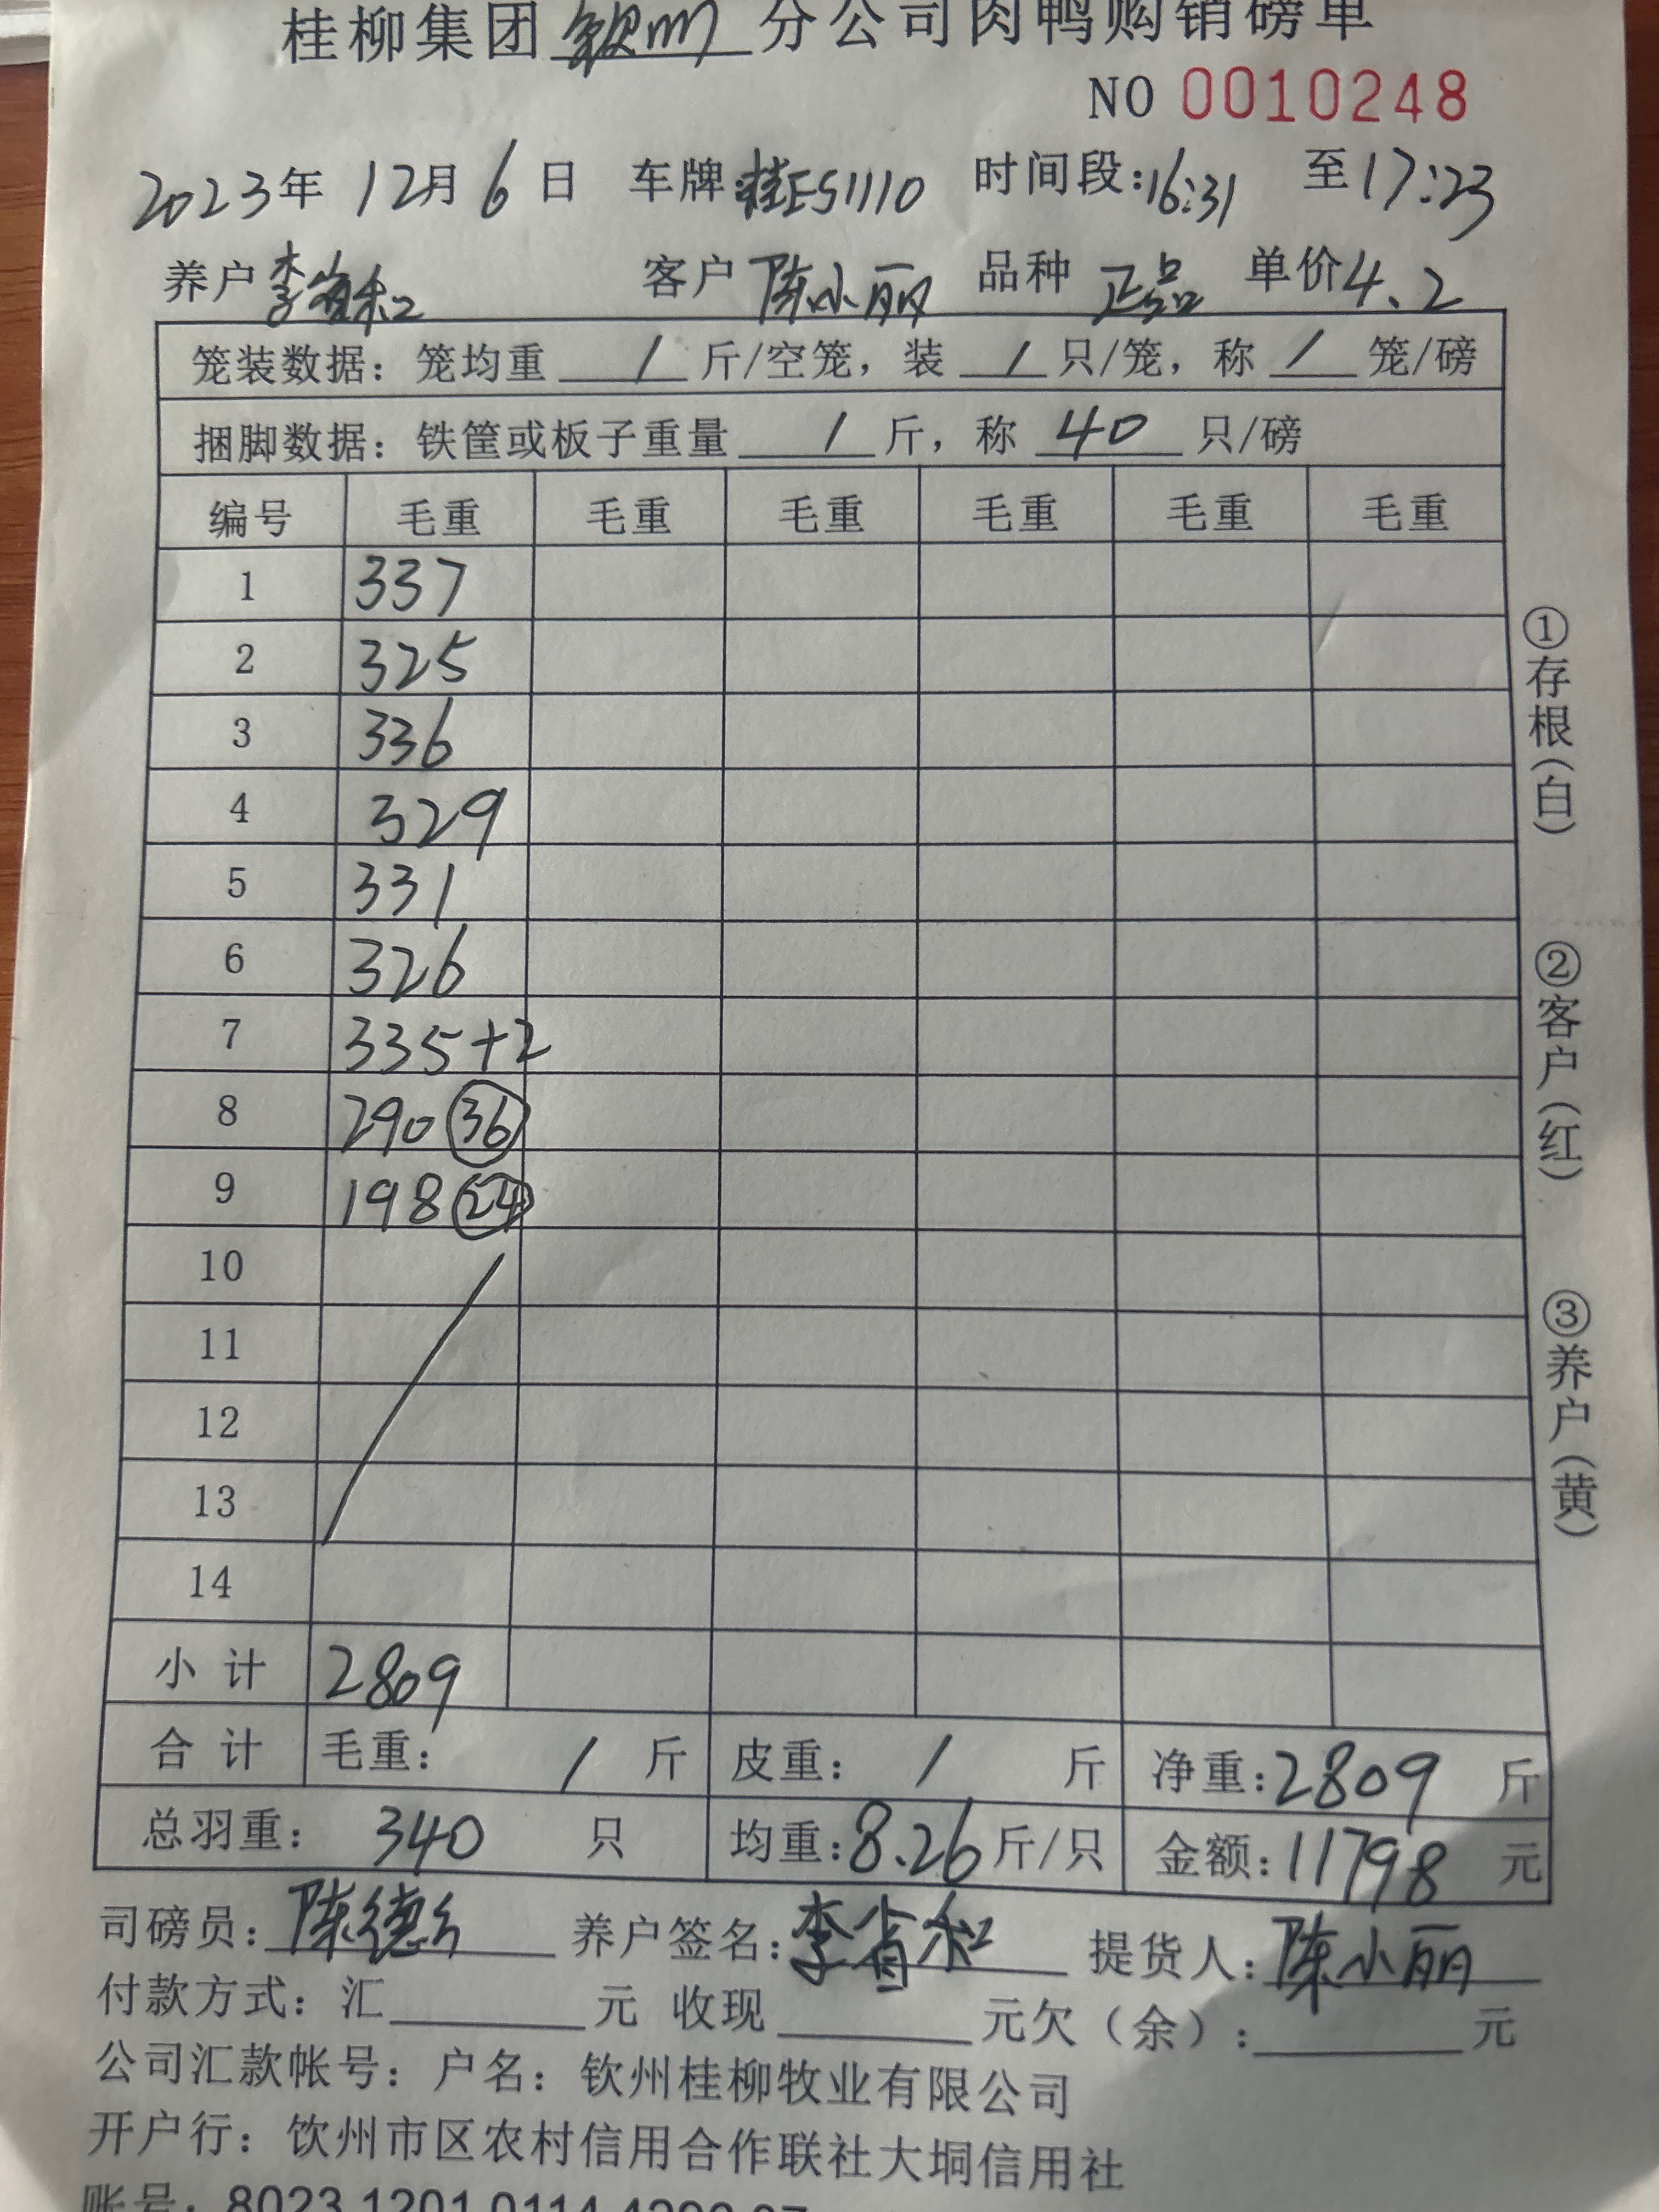 桂柳集团钦州分公司肉鸭购销磅单
NO 0010248
2023年 12月 6 日 车牌:桂ES1110 时间段:16:31 至17:23
养户 李 和 客户 陈小丽 品种 正品 单价4.2
笼装数据：笼均重 / 斤/空笼，装 / 只/笼，称 / 笼/磅
捆脚数据：铁筐或板子重量 / 斤，称 40 只/磅
编号 毛重 毛重 毛重 毛重 毛重 毛重
1 337
2 325
3 336
4 329
5 331
6 326
7 335+2
8 290 36
9 198 24
10
11
12
13
14
小计 2809
合计 毛重： / 斤 皮重： / 斤 净重:2809 斤
总羽重： 340 只 均重:8.26斤/只 金额:11798 元
司磅员:陈德 养户签名:李 和 提货人:陈小丽
付款方式：汇 元 收现 元欠（余）: 元
公司汇款帐号：户名：钦州桂柳牧业有限公司
开户行：钦州市区农村信用合作联社大垌信用社
账号：8023 1201 0114
①存根(白)
②客户(红)
③养户(黄)